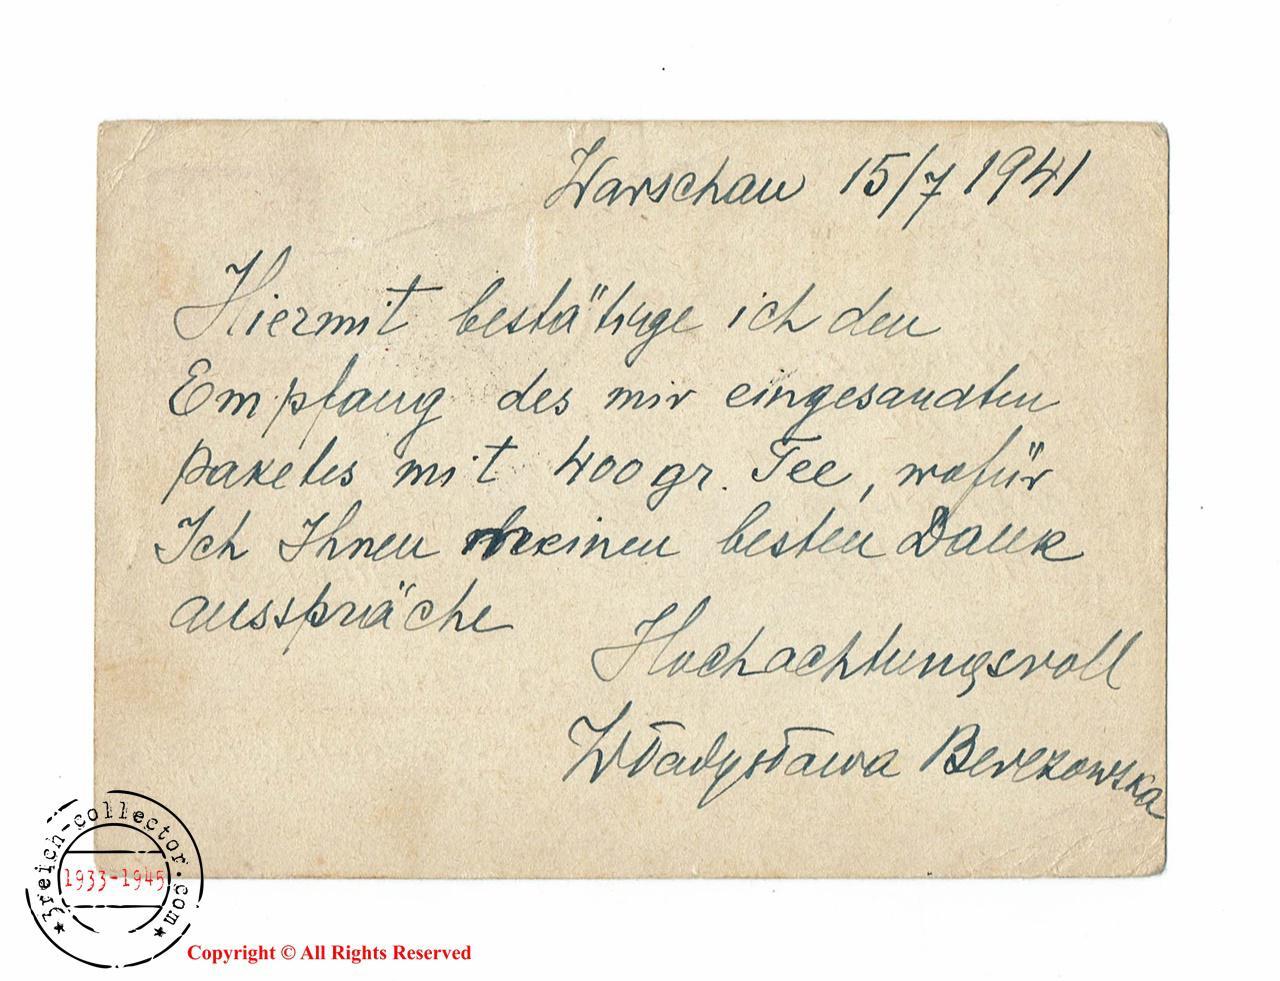 Warschau 15/7 1941
Hiermit bestätige ich den
Empfang des mir eingesandten
paketes mit 400 gr. Tee, wofür
Ich Ihnen meinen besten Dank
ausspräche
Hochachtungsvoll
Władysława Berezowska
3reich-collector.com
1933-1945
Copyright © All Rights Reserved